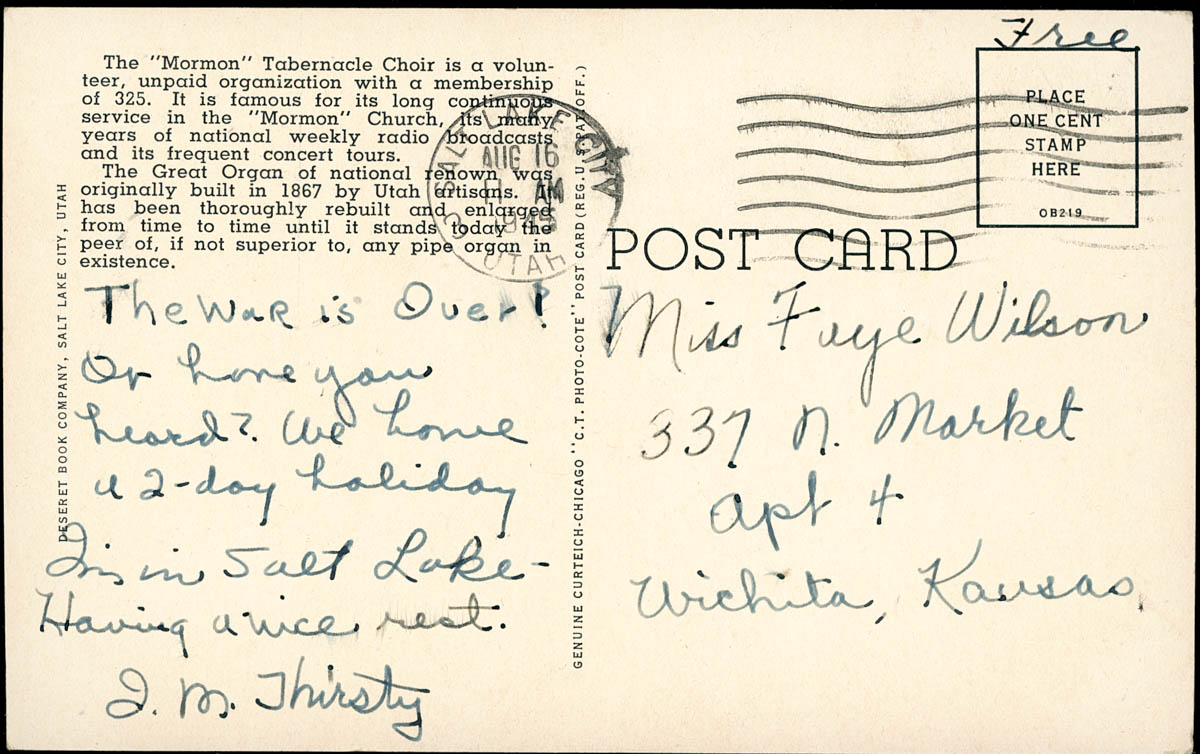 Free
PLACE
ONE CENT
STAMP
HERE
OB219
The "Mormon" Tabernacle Choir is a volun-
teer, unpaid organization with a membership
of 325. It is famous for its long continuous
service in the "Mormon" Church, its many
years of national weekly radio broadcasts
and its frequent concert tours.
The Great Organ of national renown was
originally built in 1867 by Utah artisans. It
has been thoroughly rebuilt and enlarged
from time to time until it stands today the
peer of, if not superior to, any pipe organ in
existence.
SALT LAKE CITY
AUG 16
AM
1945
UTAH
DESERET BOOK COMPANY, SALT LAKE CITY, UTAH
GENUINE CURTEICH-CHICAGO "C.T. PHOTO-COTE" POST CARD (REG. U.S. PAT. OFF.)
POST CARD
The War is Over!
Or have you
heard? We have
a 2-day holiday
I'm in Salt Lake-
Having a nice rest.
I. M. Thirsty
Miss Faye Wilson
337 N. Market
Apt 4
Wichita, Kansas.